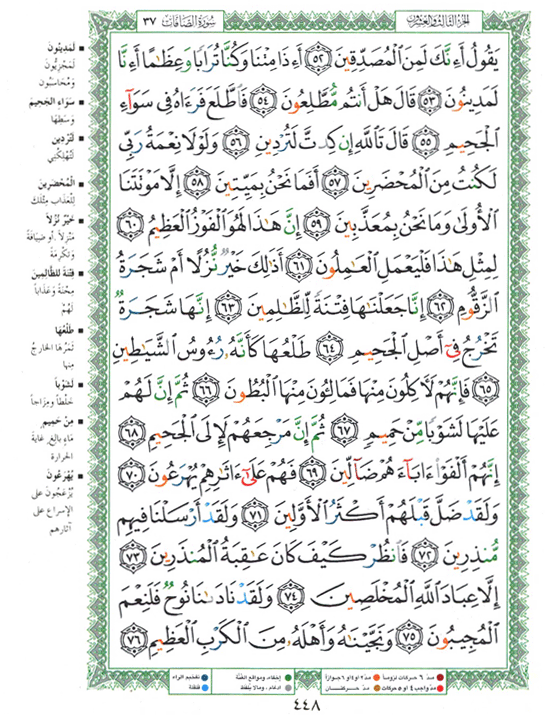 الجزء الثالث والعشرون
سورة الصافات ٣٧
يَقُولُ أَءِنَّكَ لَمِنَ ٱلْمُصَدِّقِينَ ٥٢ أَءِذَا مِتْنَا وَكُنَّا تُرَابًا وَعِظَٰمًا أَءِنَّا
لَمَدِينُونَ ٥٣ قَالَ هَلْ أَنتُم مُّطَّلِعُونَ ٥٤ فَٱطَّلَعَ فَرَءَاهُ فِى سَوَآءِ
ٱلْجَحِيمِ ٥٥ قَالَ تَٱللَّهِ إِن كِدتَّ لَتُرْدِينِ ٥٦ وَلَوْلَا نِعْمَةُ رَبِّى
لَكُنتُ مِنَ ٱلْمُحْضَرِينَ ٥٧ أَفَمَا نَحْنُ بِمَيِّتِينَ ٥٨ إِلَّا مَوْتَتَنَا
ٱلْأُولَىٰ وَمَا نَحْنُ بِمُعَذَّبِينَ ٥٩ إِنَّ هَٰذَا لَهُوَ ٱلْفَوْزُ ٱلْعَظِيمُ ٦٠
لِمِثْلِ هَٰذَا فَلْيَعْمَلِ ٱلْعَٰمِلُونَ ٦١ أَذَٰلِكَ خَيْرٌ نُّزُلًا أَمْ شَجَرَةُ
ٱلزَّقُّومِ ٦٢ إِنَّا جَعَلْنَٰهَا فِتْنَةً لِّلظَّٰلِمِينَ ٦٣ إِنَّهَا شَجَرَةٌ
تَخْرُجُ فِىٓ أَصْلِ ٱلْجَحِيمِ ٦٤ طَلْعُهَا كَأَنَّهُۥ رُءُوسُ ٱلشَّيَٰطِينِ
٦٥ فَإِنَّهُمْ لَءَاكِلُونَ مِنْهَا فَمَالِـُٔونَ مِنْهَا ٱلْبُطُونَ ٦٦ ثُمَّ إِنَّ لَهُمْ
عَلَيْهَا لَشَوْبًا مِّنْ حَمِيمٍ ٦٧ ثُمَّ إِنَّ مَرْجِعَهُمْ لَإِلَى ٱلْجَحِيمِ ٦٨
إِنَّهُمْ أَلْفَوْا۟ ءَابَآءَهُمْ ضَآلِّينَ ٦٩ فَهُمْ عَلَىٰٓ ءَاثَٰرِهِمْ يُهْرَعُونَ ٧٠
وَلَقَدْ ضَلَّ قَبْلَهُمْ أَكْثَرُ ٱلْأَوَّلِينَ ٧١ وَلَقَدْ أَرْسَلْنَا فِيهِم
مُّنذِرِينَ ٧٢ فَٱنظُرْ كَيْفَ كَانَ عَٰقِبَةُ ٱلْمُنذَرِينَ ٧٣
إِلَّا عِبَادَ ٱللَّهِ ٱلْمُخْلَصِينَ ٧٤ وَلَقَدْ نَادَىٰنَا نُوحٌ فَلَنِعْمَ
ٱلْمُجِيبُونَ ٧٥ وَنَجَّيْنَٰهُ وَأَهْلَهُۥ مِنَ ٱلْكَرْبِ ٱلْعَظِيمِ ٧٦
لَمَدِينُونَ
لَمَجْزِيُّونَ
وَمُحَاسَبُونَ
سَوَاءِ الجَحِيمِ
وَسَطِهَا
لَتُرْدِينِ
لَتُهْلِكُنِي
الْمُحْضَرِينَ
لِلْعَذَابِ مِثْلَكَ
خَيْرٌ نُزُلاً
مَنْزِلاً أو ضِيَافَةً
وَتَكْرِمَةً
فِتْنَةً لِلظَّالِمِينَ
مِحْنَةً وَعَذَاباً
لَهُمْ
طَلْعُهَا
ثَمَرُهَا الخَارِجُ
مِنها
لَشَوْباً
خَلْطاً ومِزَاجاً
مِنْ حَمِيمٍ
مَاءٍ بَالِغٍ غايةَ
الحَرارَة
يُهْرَعُونَ
يُزْعَجُونَ على
الإسراعِ على
آثارِهم
مدّ ٦ حركات لزوماً
مدّ ٢ أو ٤ أو ٦ جوازاً
إخفاء، ومواقع الغُنَّة
تفخيم الراء
مدّ واجب ٤ أو ٥ حركات
مدّ حركتان
ادغام، ومالا يُلفَظ
قلقلة
٤٤٨